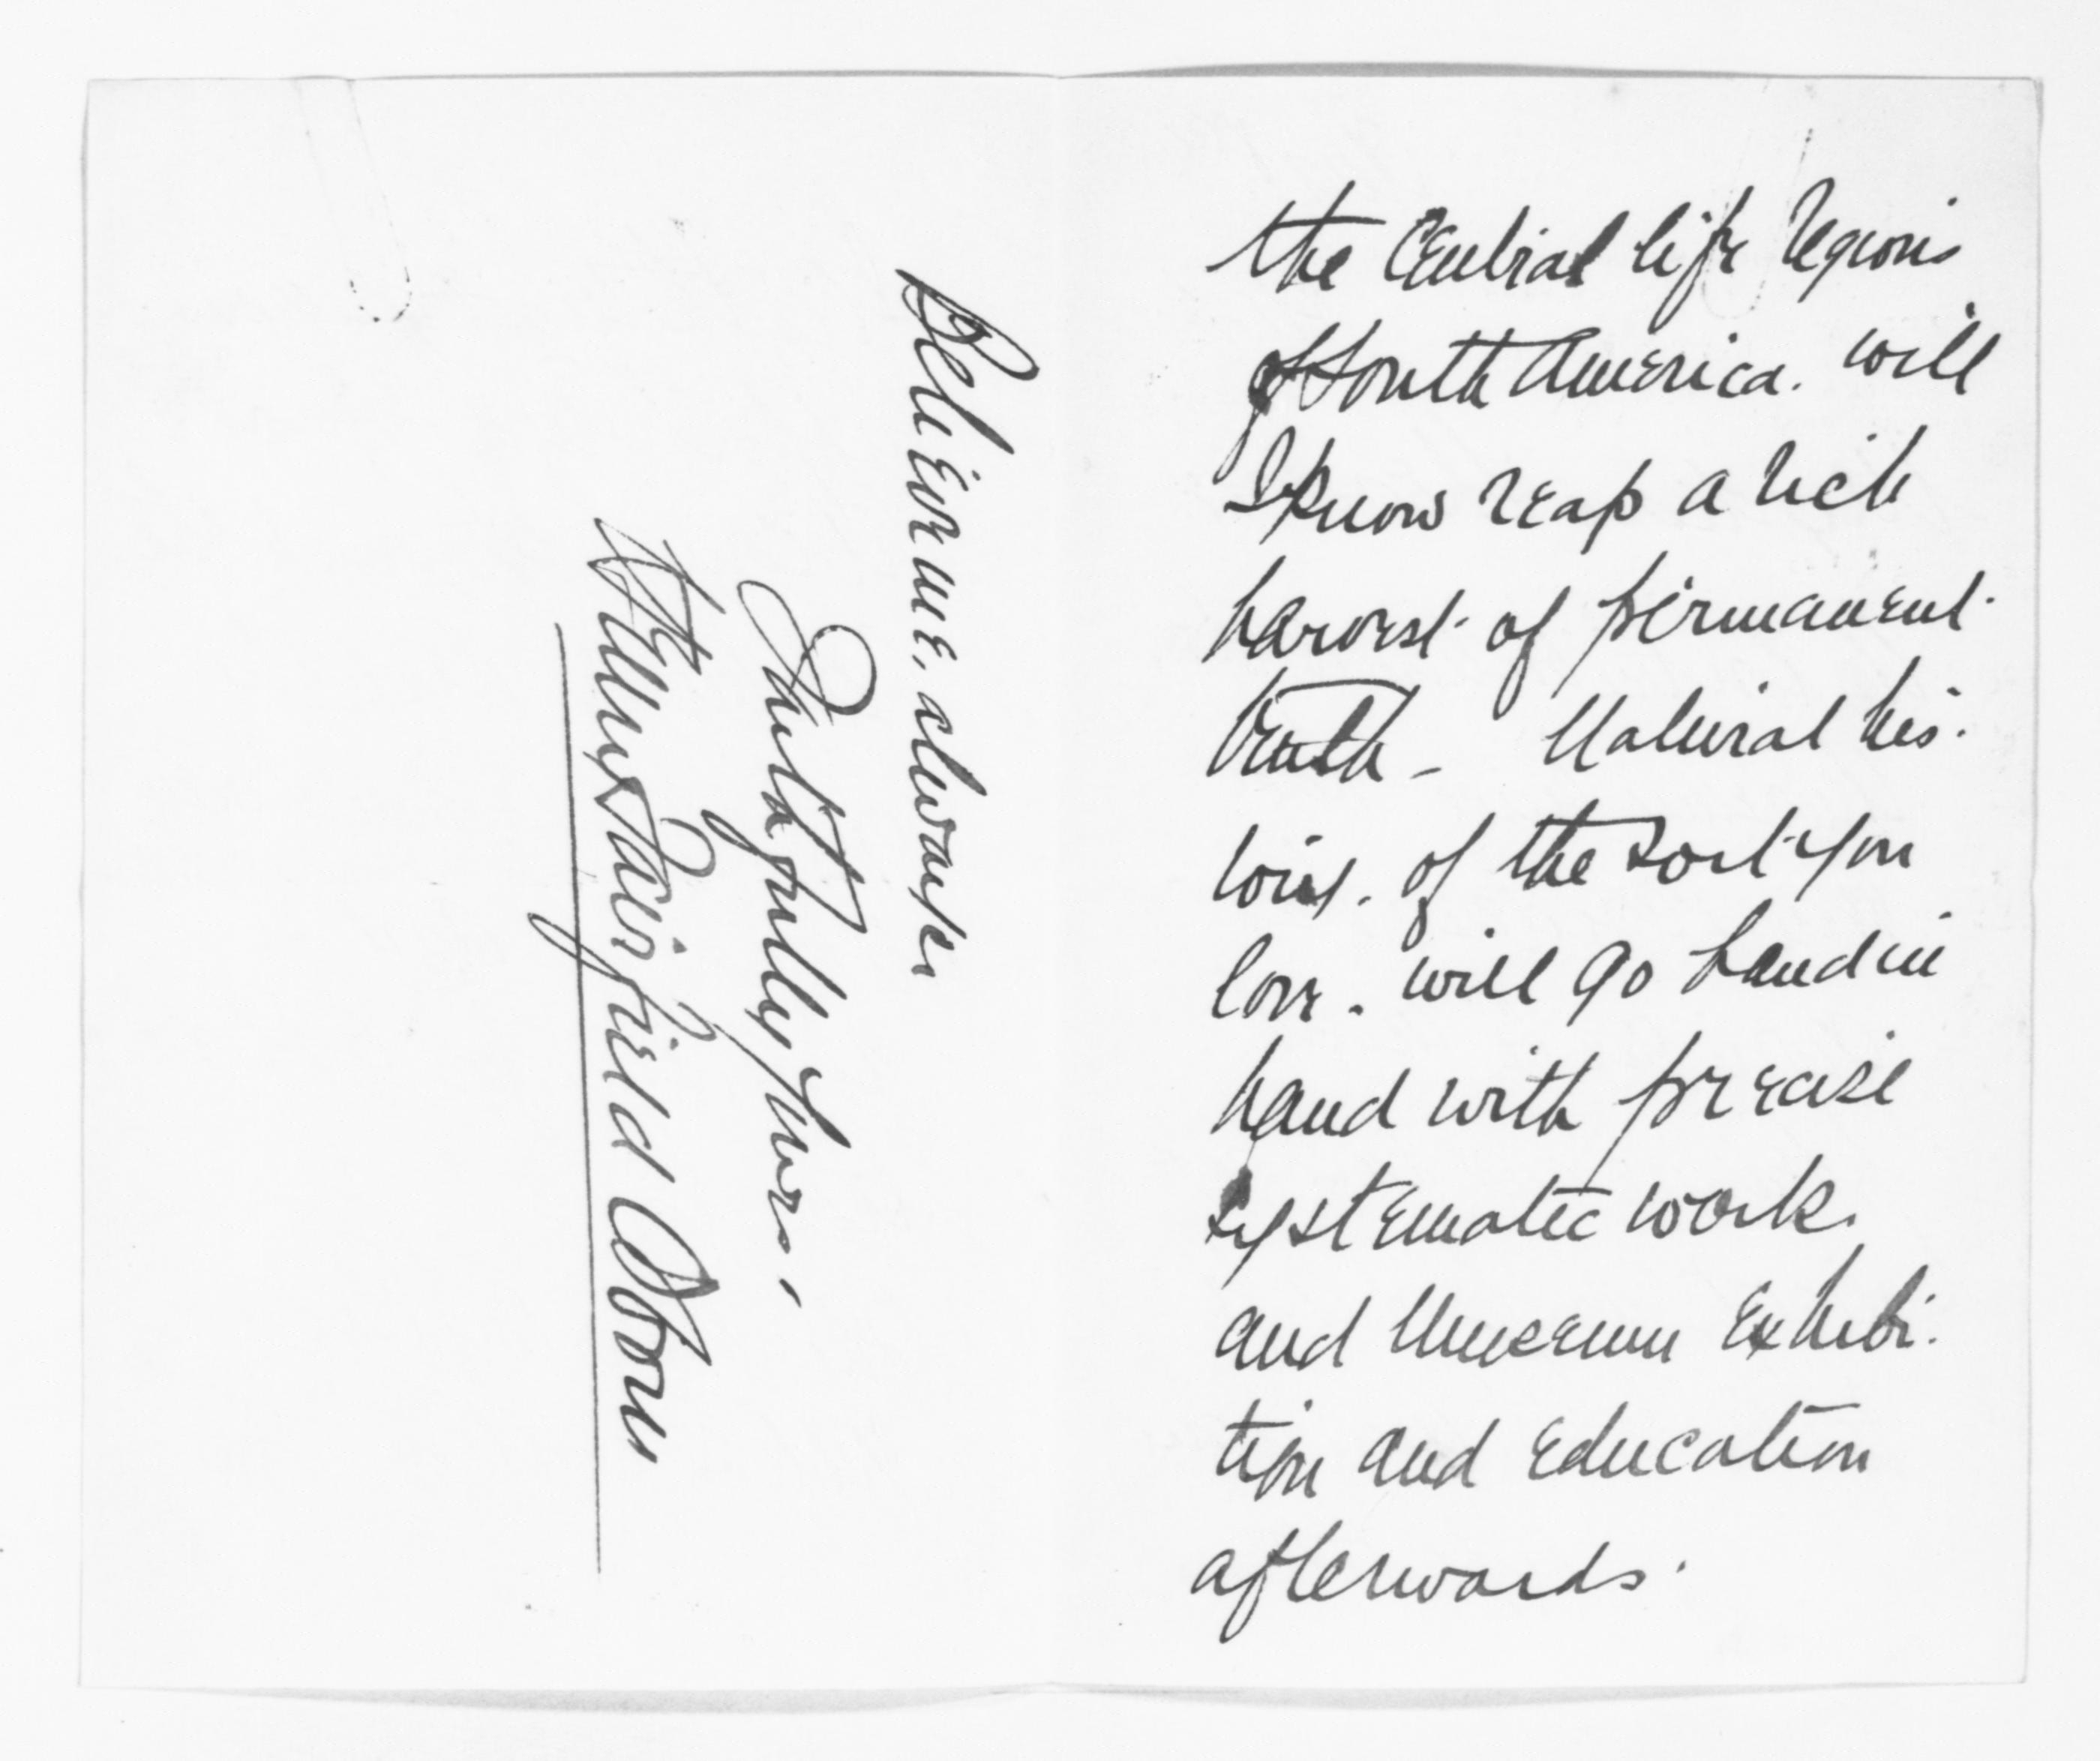 the Central life regions
of South America. will
I know reap a rich
harvest of permanent
truth - Natural his-
tory. of the sort you
love. will go hand in
hand with precise
systematic work.
and Museum Exhibi-
tion and education
afterwards.
Believe me, always
Faithfully Yours,
Henry Fairfield Osborn